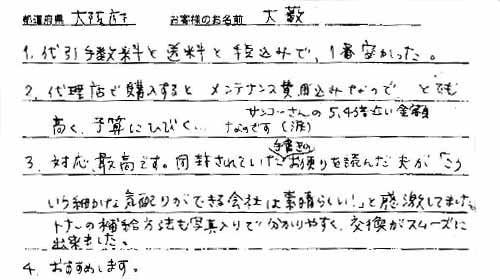 都道府県 大阪府 お客様のお名前 大藪
1. 代引手数料と送料と税込みで、1番安かった。
2. 代理店で購入すると メンテナンス費用込みなので とても
高く、予算にひびく… サンコーさんの5,4倍近い金額
なのです(涙)
手書きの
3. 対応、最高です。同封されていたお便りを読んだ夫が「こう
いう細かな気配りができる会社は素晴らしい!」と感激してました。
トナーの補給方法も写真入りで分かりやすく、交換がスムーズに
出来ました。
4. おすすめします。